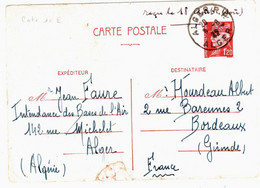 Cote 10 €
reçu le
CARTE POSTALE
ALGER R.P.
ALGER
1,20
EXPÉDITEUR
DESTINATAIRE
M Jean Faure
Intendance des Bases de l'Air
142 rue Michelet
Alger
(Algérie)
M Hourdeau Albert
2 rue Barennes 2
Bordeaux
Gironde
France